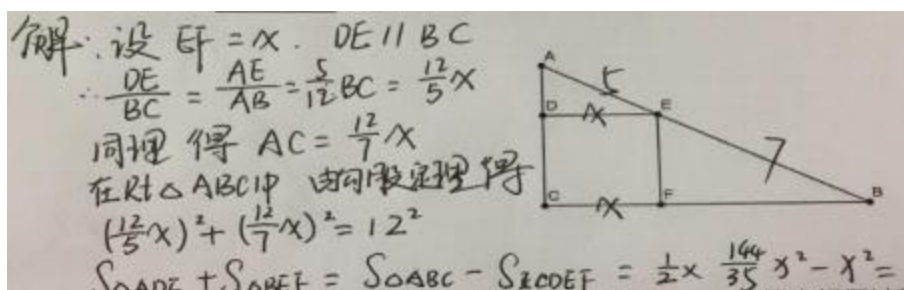 解:设 EF = x . DE // BC
∴ DE/BC = AE/AB = 5/12 BC = 12/5 x
同理 得 AC = 12/7 x
在Rt△ABC中 由勾股定理得
(12/5 x)² + (12/7 x)² = 12²
S△ADE + S△BEF = S△ABC - S正CDEF = 1/2 x 144/35 x² - x² =
A
5
D
x
E
7
C
x
F
B